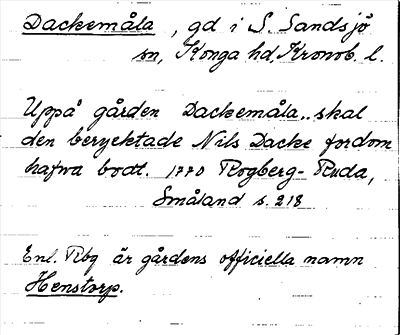 Dackemåla, gd i S. Sandsjö
sn, Konga hd, Kronob. l.
Uppå gården Dackemåla.. skal
den beryktade Nils Dacke fordom
hafwa bodt. 1770 Rogberg-Ruda,
Småland s. 218
Enl. Rbg är gårdens officiella namn
Henstorp.